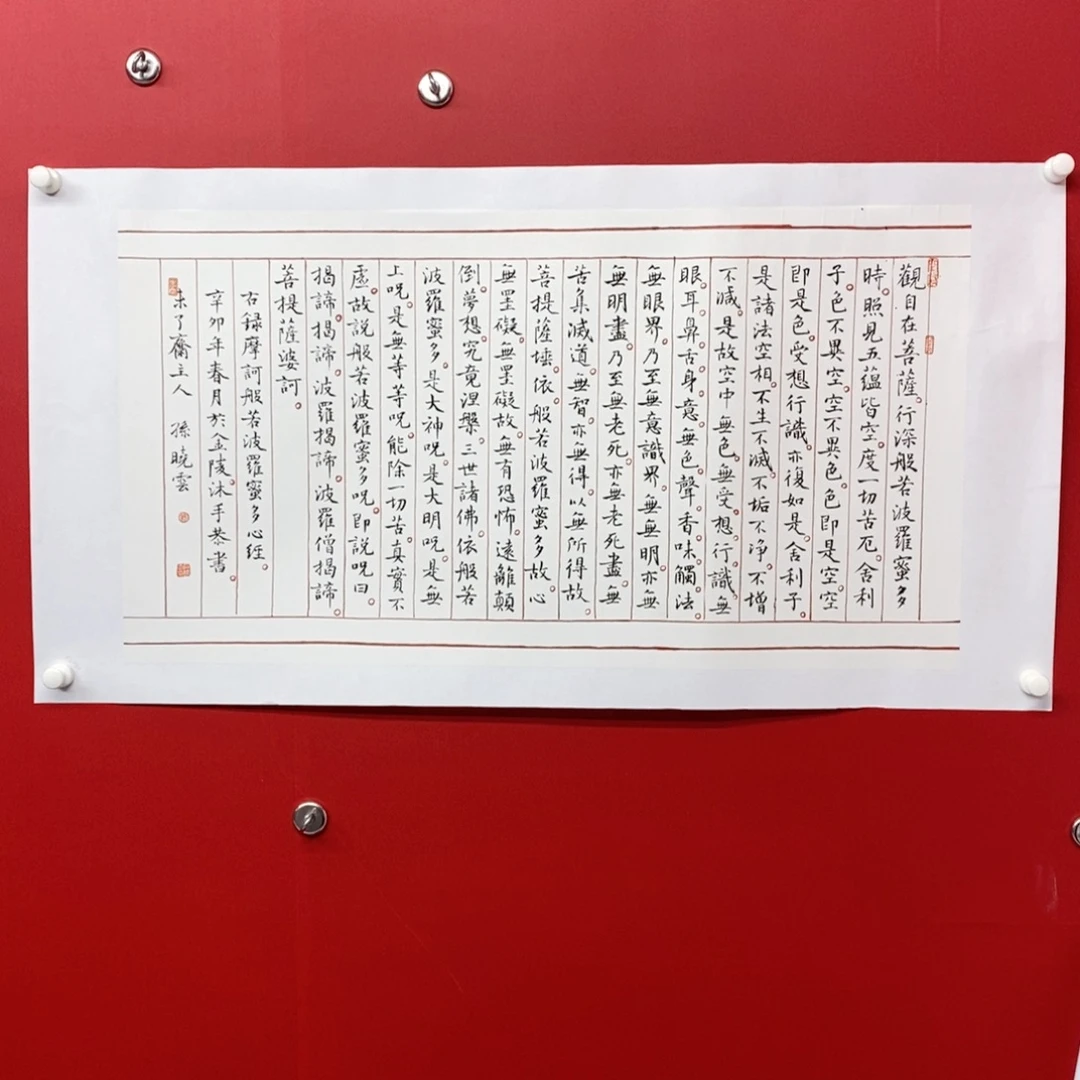 觀自在菩薩。行深般若波羅蜜多
時。照見五蘊皆空。度一切苦厄。舍利
子。色不異空。空不異色。色即是空。空
即是色。受想行識。亦復如是。舍利子。
是諸法空相。不生不滅。不垢不淨。不增
不減。是故空中。無色。無受。想。行。識。無
眼。耳。鼻。舌。身。意。無色。聲。香。味。觸。法。
無眼界。乃至無意識界。無無明。亦無
無明盡。乃至無老死。亦無老死盡。無
苦集滅道。無智。亦無得。以無所得故。
菩提薩埵。依般若波羅蜜多故。心
無罣礙。無罣礙故。無有恐怖。遠離顛
倒。夢想。究竟涅槃。三世諸佛。依般若
波羅蜜多。是大神呪。是大明呪。是無
上呪。是無等等呪。能除一切苦。真實不
虛。故說般若波羅蜜多呪。即說呪曰。
揭諦。揭諦。波羅揭諦。波羅僧揭諦。
菩提薩婆訶。
右録摩訶般若波羅蜜多心經。
辛卯年春月於金陵。沐手恭書。
未了齋主人 孫曉雲